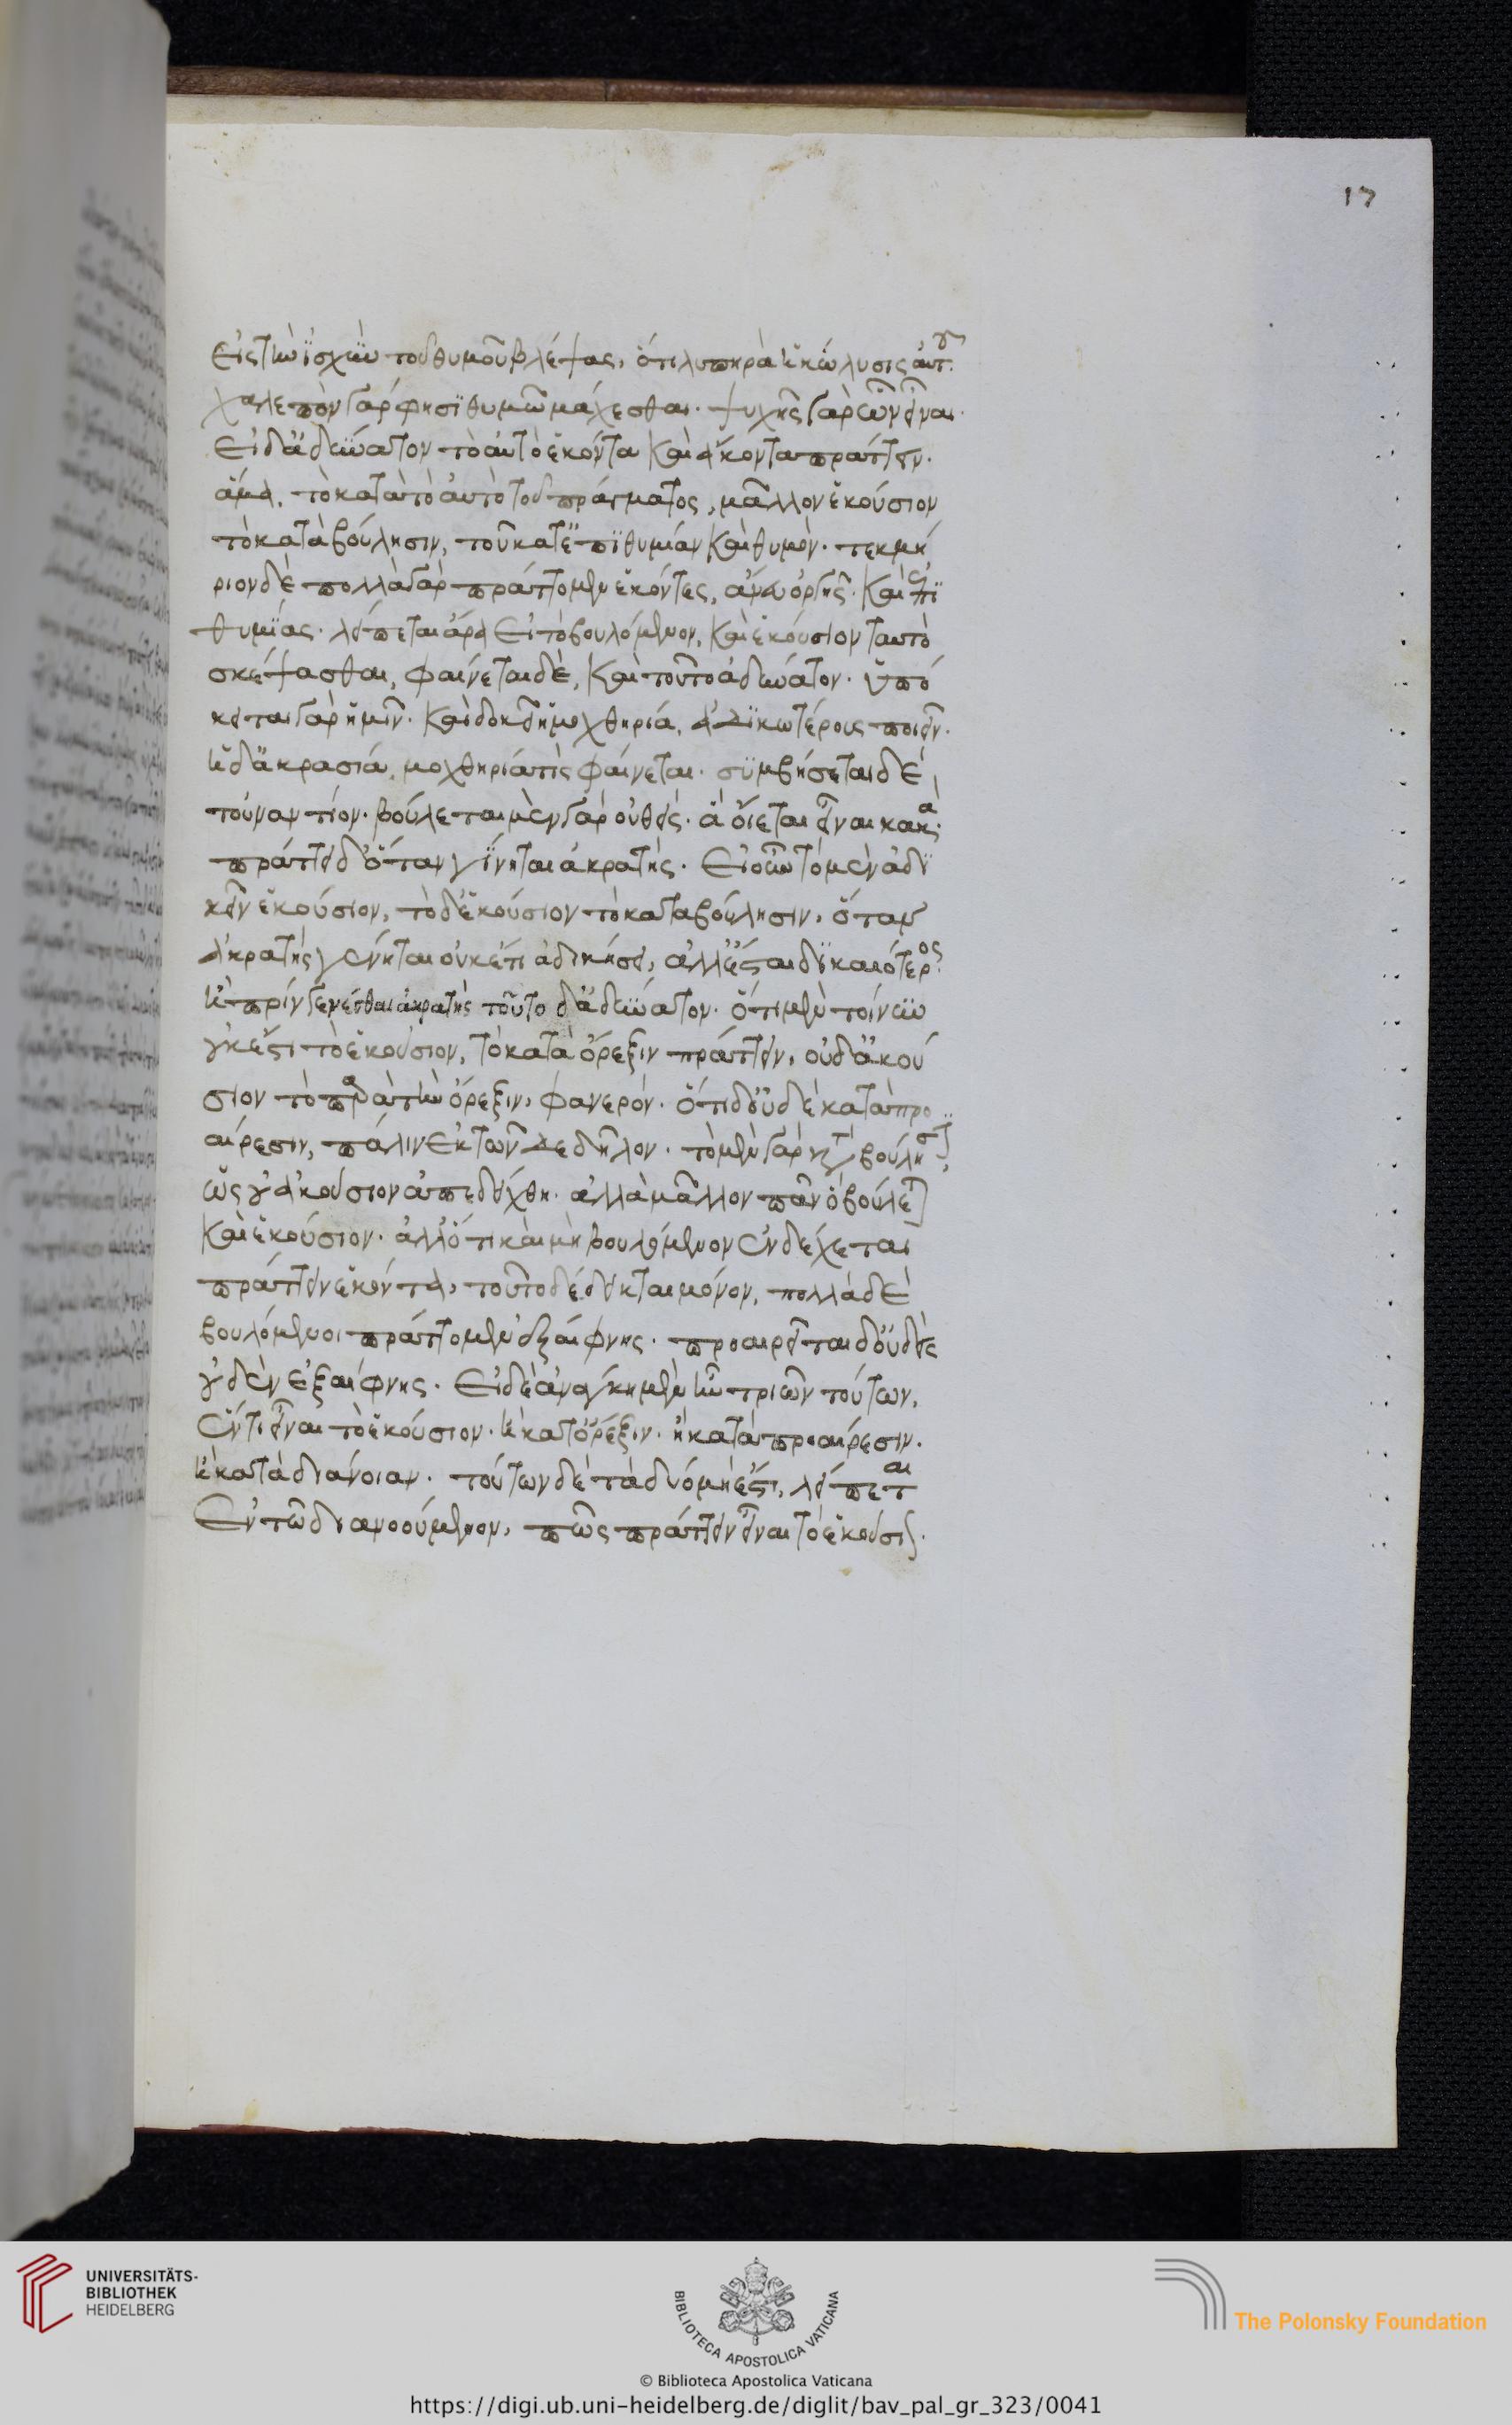 17
εἰς τὴν ἰσχὺν τοῦ θυμοῦ βλέψας, ὅτι λυπηρὰ ἡ κώλυσις αὐτοῦ.
χαλεπὸν γάρ φησι θυμῶ μάχεσθαι. ψυχῆς γὰρ ὠνεῖναι.
εἰ δ' ἀδύνατον τὸ αὐτὸ ἑκόντα καὶ ἄκοντα πράττειν.
ἅμα. τὸ κατὰ τὸ αὐτὸ τοῦ πράγματος, μᾶλλον ἑκούσιον
τὸ κατὰ βούλησιν, τοῦ κατ' ἐπιθυμίαν καὶ θυμόν. τεκμή
ριον δὲ πολλὰ γὰρ πράττομεν ἑκόντες, ἄνευ ὀργῆς. καὶ ἐπι
θυμίας. λείπεται ἄρα εἰ τὸ βουλόμενον, καὶ ἑκούσιον ταυτὸ
σκέψασθαι, φαίνεται δὲ, καὶ τοῦτο ἀδύνατον. ὑπό
κειται γὰρ ἡμῖν. καὶ δοκεῖ ἡ μοχθηρία, ἀδικωτέρους ποιεῖν.
ἡ δ' ἀκρασία, μοχθηρία τὶς φαίνεται. συμβήσεται δὲ
τοὐναντίον. βούλεται μὲν γὰρ οὐθείς. ἃ οἴεται εἶναι κακά.
πράττει δ' ὅταν γίνηται ἀκρατής. εἰ οὖν τὸ μὲν ἀδι
κεῖν ἑκούσιον, τὸ δ' ἑκούσιον τὸ κατὰ βούλησιν, ὅταν
ἀκρατὴς γένηται οὐκέτι ἀδικήσει, ἀλλ' ἔσται δικαιότερος.
ἢ πρὶν γενέσθαι ἀκρατὴς τοῦτο δ' ἀδύνατον. ὅτι μὲν τοίνυν
οὐκ ἔστι τὸ ἑκούσιον, τὸ κατὰ ὄρεξιν πράττειν, οὐδ' ἀκού
σιον τὸ παρὰ τὴν ὄρεξιν, φανερόν. ὅτι δ' οὐδὲ κατὰ προ
αίρεσιν, πάλιν ἐκ τῶνδε δῆλον. τὸ μὲν γὰρ κατὰ βούλησιν
ὡς οὐκ ἀκούσιον ἀπεδείχθη. ἀλλὰ μᾶλλον πᾶν ὃ βούλεται
καὶ ἑκούσιον. ἀλλ' ὅτι καὶ μὴ βουλόμενον ἐνδέχεται
πράττειν ἑκόντα, τοῦτο δέδεικται μόνον, πολλὰ δὲ
βουλόμενοι πράττομεν ἐξαίφνης. προαιρεῖται δ' οὐδεὶς
οὐδὲν ἐξαίφνης. εἰ δὲ ἀνάγκη μὲν ἦν τριῶν τούτων,
ἕν τι εἶναι τὸ ἑκούσιον. ἢ κατ' ὄρεξιν. ἢ κατὰ προαίρεσιν.
ἢ κατὰ διάνοιαν. τούτων δὲ τὰ δύο μὴ ἔστι, λείπεται
ἐν τῶ διανοούμενον, πῶς πράττειν εἶναι τὸ ἑκούσιον.
UNIVERSITÄTS-
BIBLIOTHEK
HEIDELBERG
BIBLIOTECA APOSTOLICA VATICANA
The Polonsky Foundation
© Biblioteca Apostolica Vaticana
https://digi.ub.uni-heidelberg.de/diglit/bav_pal_gr_323/0041